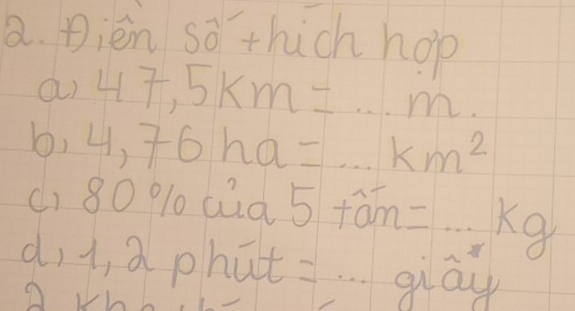 2. Điền số thích hợp
a) 47,5km = ... m.
b) 4,76 ha = ... km²
c) 80% của 5 tấn = ... kg
d) 1,2 phút = ... giây